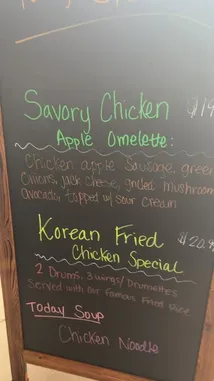 Savory Chicken $14
Apple Omelette:
Chicken apple Sausage, green
Onions, jack cheese, grilled mushroom
avocado, topped w/ sour cream
Korean Fried $20.
Chicken Special
2 Drums, 3 wings/Drumettes
Served with our Famous Fried Rice
Today Soup
Chicken Noodle